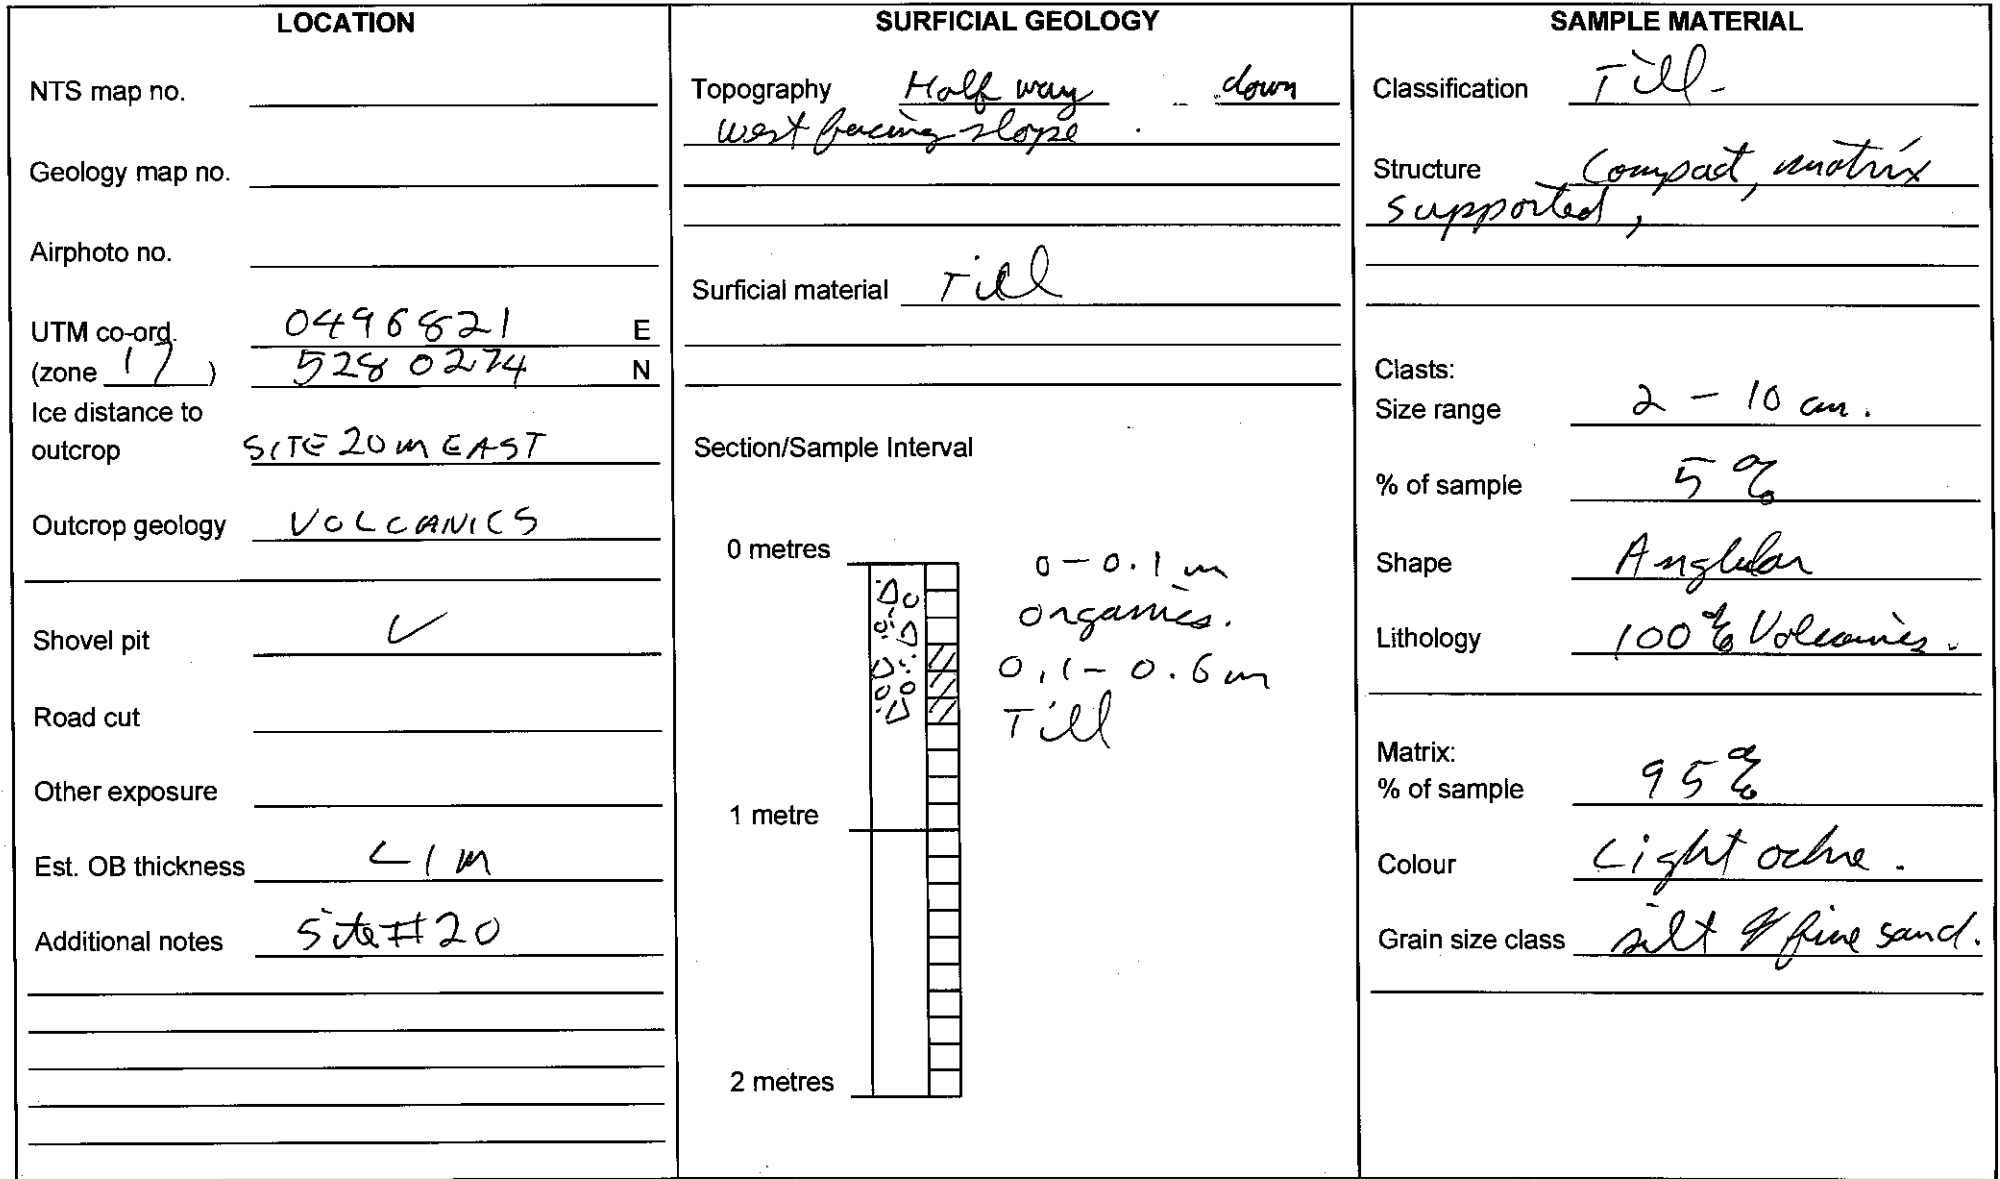 LOCATION
NTS map no.
Geology map no.
Airphoto no.
UTM co-ord. 0496821 E
(zone 17) 5280274 N
Ice distance to
outcrop SITE 20m EAST
Outcrop geology VOLCANICS
Shovel pit ✓
Road cut
Other exposure
Est. OB thickness <1m
Additional notes Site #20
SURFICIAL GEOLOGY
Topography Half way down
west facing slope.
Surficial material Till
Section/Sample Interval
0 metres
0-0.1m
organics.
0.1-0.6m
Till
1 metre
2 metres
SAMPLE MATERIAL
Classification Till-
Structure Compact, matrix
supported,
Clasts:
Size range 2-10 cm.
% of sample 5%
Shape Anglular
Lithology 100% Volcanics.
Matrix:
% of sample 95%
Colour Light ochre.
Grain size class silt & fine sand.